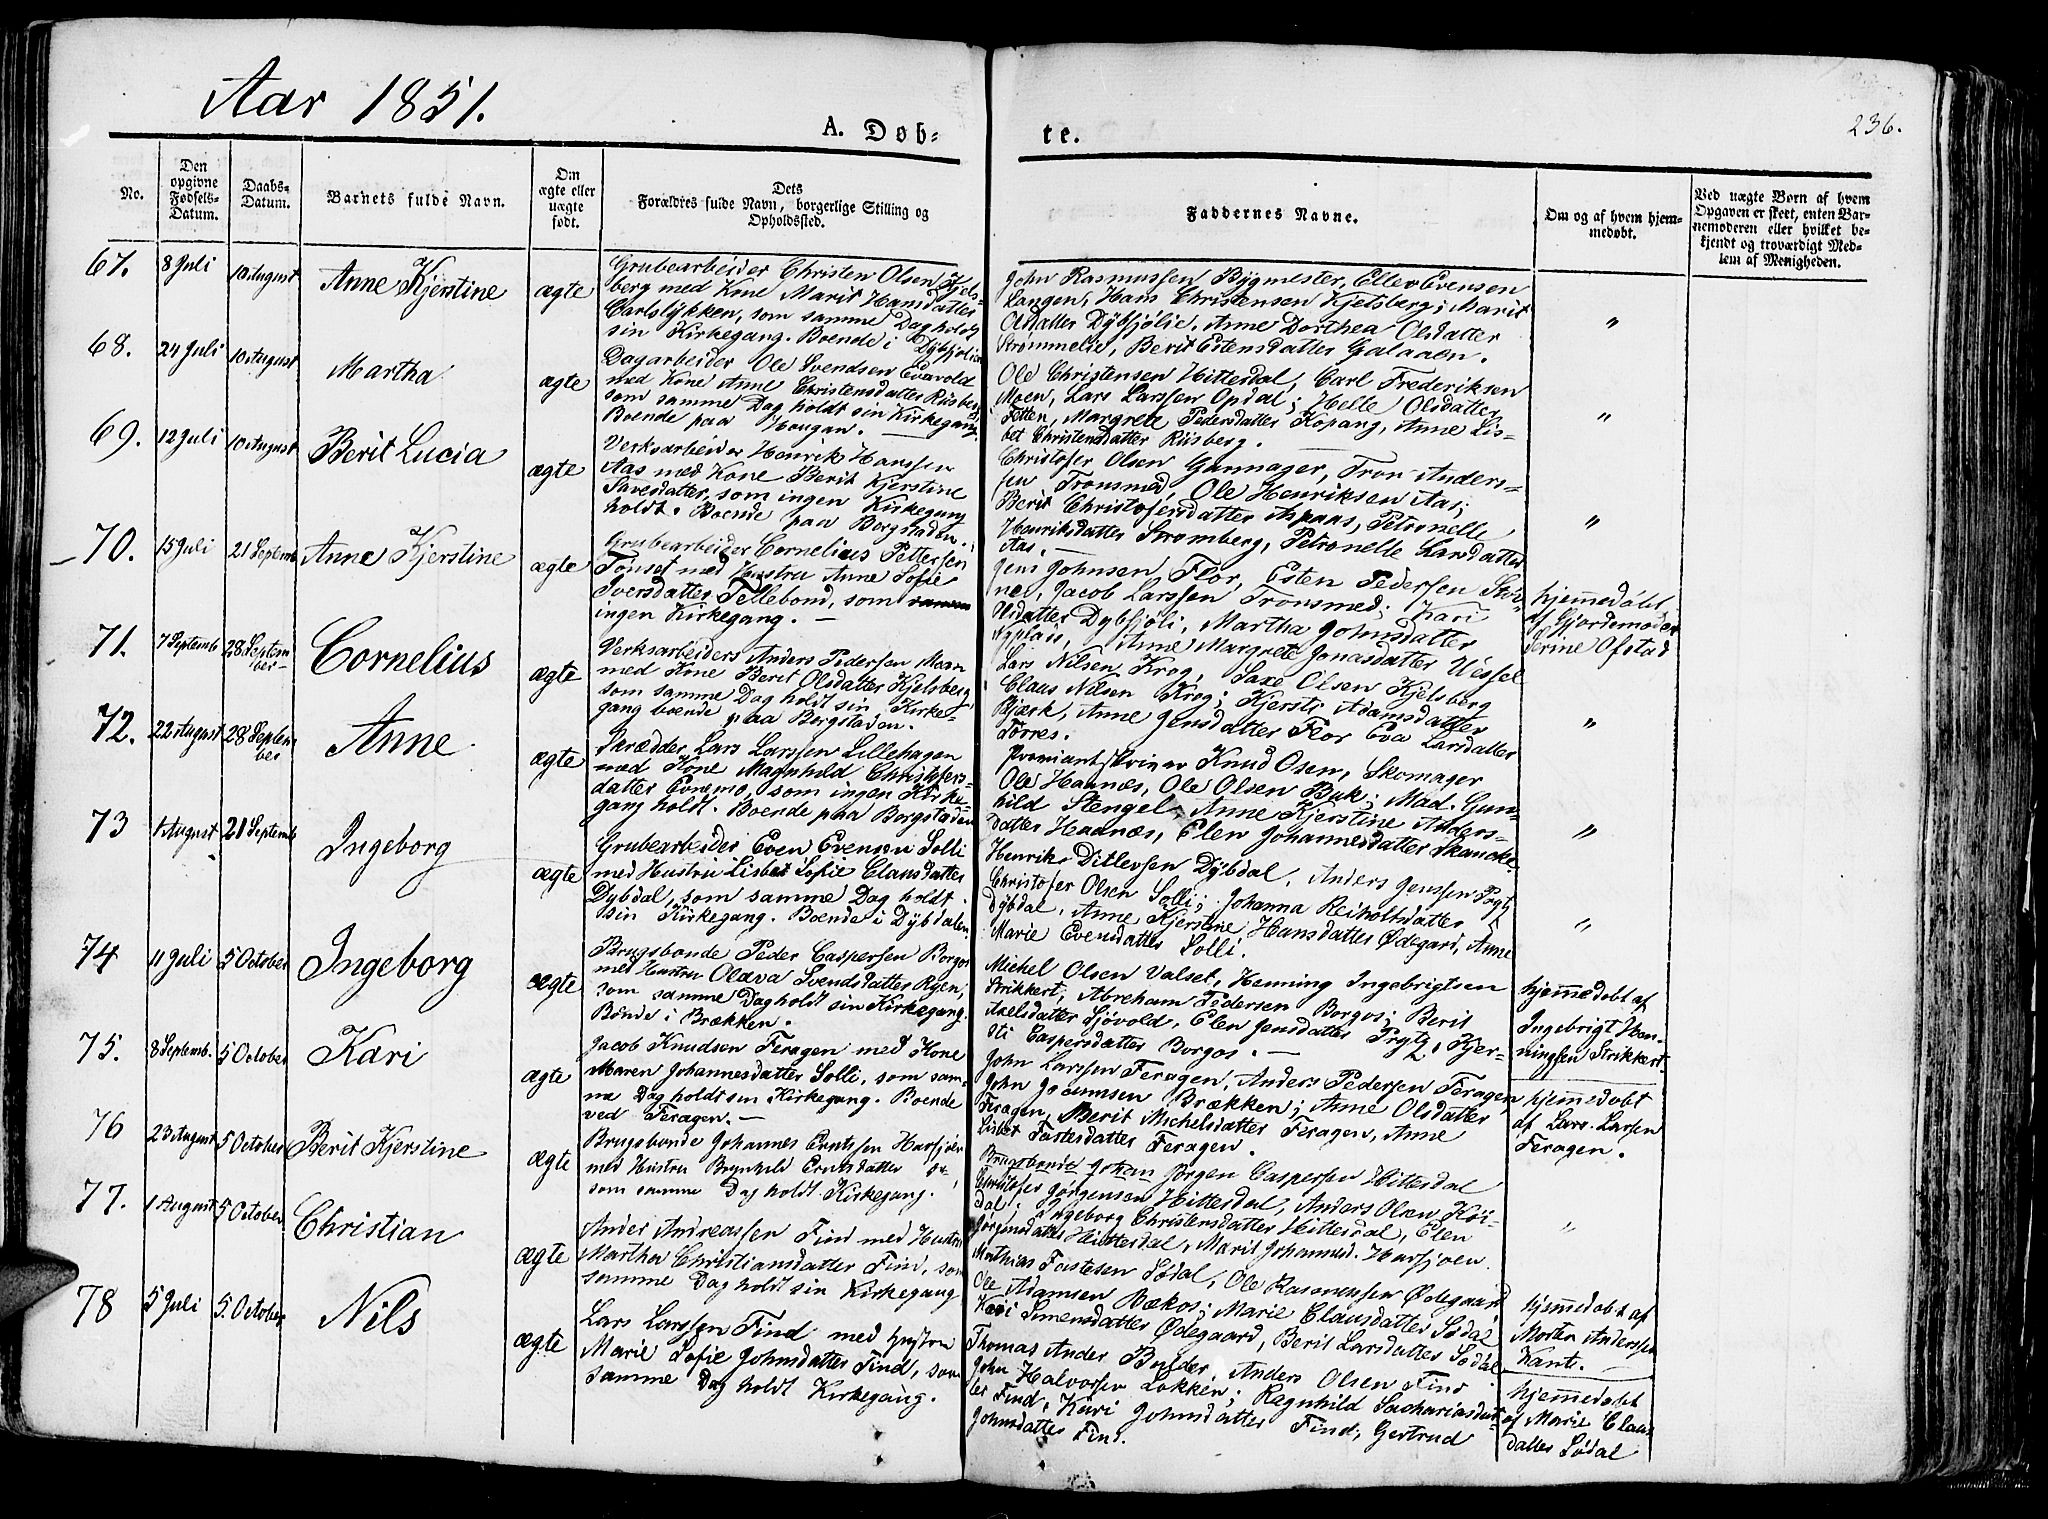 Aar 1851.
A. Døb-
te.
236.
No.
Den opgivne Fødsels-Datum.
Daabs-Datum.
Barnets fulde Navn.
Om ægte eller uægte født.
Dets Forældres fulde Navn, borgerlige Stilling og Opholdssted.
Faddernes Navne.
Om og af hvem hjem-medøbt.
Ved uægte Børn af hvem
Opgaven er skeet, enten Bar-
nemoderen eller hvilket be-
kjendt og troværdigt Med-
lem af Menigheden.
67.
8 Juli
10 August
Anne Kjerstine
ægte
Grubearbeider Christen Olsen Kjels-
berg med Kone Marit Hansdatter
Carlslykken, som samme Dag holdt
sin Kirkegang. Boende i Dybsjølien
John Rasmussen Bygmester, Ellev Evensen
Langen, Hans Christensen Kjelsberg; Marit
Olsdatter Dybsjølie, Anne Dorthea Olsdatter
Strømmelie, Berit Estensdatter Galaaen.
"
68.
24 Juli
10 August
Martha
ægte
Dagarbeider Ole Svendsen Evavold
med Kone Anne Christensdatter Riisberg
som samme Dag holdt sin Kirkegang.
Boende paa Hougan.
Ole Christensen Hitterdal, Carl Frederiksen
Moen, Lars Larssen Opdal; Helle Olsdatter
Fetten, Margrete Pedersdatter Kopang, Anne Lis-
bet Christensdatter Riisberg.
"
69.
12 Juli
10 August
Berit Lucia
ægte
Verksarbeider Henrik Hanssen
Aas med Kone Berit Kjerstine
Tavesdatter, som ingen Kirkegang
holdt. Boende paa Borgstaden.
Christofer Olsen Garmager, Tron Anders-
sen Tronsmed, Ole Henriksen Aas;
Berit Christofersdatter Aspaas, Petronelle
Henriksdatter Strømberg, Petronelle Larsdatter
Aas.
"
70.
15 Juli
21 Septemb
Anne Kjerstine
ægte
Grubearbeider Cornelius Pettersen
Tønset med Hustru Anne Sofie
Iversdatter Tellebond, som samme
ingen Kirkegang.
Jens Johnsen Flor, Esten Pedersen
Jacob Larssen Tronsmed; Kari
Olsdatter Dybsjøli, Martha Johnsdatter
Anne Margrete Jonasdatter Wessel
hjemmedøbt
af Gjordemoder
Serine Ofstad
71.
7 Septemb
28 Septem
ber
Cornelius
ægte
Verksarbeiders Anders Pedersen Moan
med Kone Berit Olsdatter Kjelsberg,
som samme Dag holdt sin Kirke-
gang boende paa Borgstaden.
Lars Nilsen Krog, Saxe Olsen Kjelsberg
Claus Nilsen Krog; Kjersti Adamsdatter
Bjørk, Anne Jensdatter Flor Eva Larsdatter
Torres.
"
72.
22 August
28 Septem
ber
Anne
ægte
Skrædder Lars Larssen Lillehagen
med Kone Magnhild Christofers-
datter Evnemo, som ingen Kirke-
gang holdt. Boende paa Borgstaden
Proviantskriver Knud Osen, Skomager
Ole Haanæs, Ole Olsen Buk; Mad. Gun-
hild Stengel, Anne Kjerstine Anders-
datter Haanæs, Elen Johannesdatter Skancke.
"
73
1 August
21 Septemb
Ingeborg
ægte
Grubearbeider Even Evensen Solli
med Hustru Lisbet Sofie Clausdatter
Dybdal, som samme Dag holdt
sin Kirkegang. Boende i Dybdalen.
Henrik Ditlevsen Dybdal, Anders Jenssen Prytz
Christofer Olsen Solli; Johanna Reiholtsdatter
Dybdal, Anne Kjerstine Hansdatter Ødegard, Anne
Marie Evensdatter Solli.
"
74
11 Juli
5 October
Ingeborg
ægte
Brugsbonde Peder Caspersen Borgos
med Hustru Olava Svendsdatter Ryen,
som samme Dag holdt sin Kirkegang.
Bonde i Brækken.
Michel Olsen Valset, Henning Ingebrigtsen
Strikkert, Abreham Pedersen Borgos; Berit
Axelsdatter Sjøvold, Elen Jensdatter Prytz, Kjer-
sti Caspersdatter Borgos.
hjemmedøbt af
Ingebrigt Hen-
ningsen Strikkert.
75.
8 Septemb.
5 October
Kari
ægte
Jacob Knudsen Feragen med Kone
Maren Johannesdatter Solli, som sam-
me Dag holdt sin Kirkegang. Boende
ved Feragen.
John Larssen Feragen, Anders Pedersen Feragen,
John Joensen Brækken; Anne Olsdatter
Feragen, Berit Michelsdatter Feragen, Anne
Lisbet Fastesdatter Feragen.
hjemmedøbt
af Lars Larsen
Feragen.
76
23 August
5 October
Berit Kjerstine
ægte
Brugsbonde Johannes Erntssen Harsjøen
med Hustru Brynhild Erntsdatter
som samme Dag holdt Kirkegang.
Brugsbonde Johan Jørgen Caspersen Hitterdal
Christofer Jørgensen Hitterdal, Anders Olsen Koi-
dal; Ingeborg Christensdatter Hitterdal, Elen
Jørgensdatter Hitterdal, Marit Johannesd. Harsjøen.
"
77.
1 August
5 October
Christian
ægte
Ander Andreassen Find med Hustru
Martha Christiansdatter Find, som
samme Dag holdt sin Kirkegang
Mathias Fastesen Sødal, Ole Rasmussen Ødegaard
Ole Adamsen Bækos; Marie Clausdatter Sødal
Kari Simensdatter Ødegaard, Berit Larsdatter Sødal
hjemmedøbt af
Morten Anderssen
Kant.
78
5 Juli
5. October
Nils
ægte
Lars Larssen Find med Hustru
Marie Sofie Johnsdatter Find, som
samme Dag holdt Kirkegang.
Thomas Ander Bulder, Anders Olsen Find
John Halvorsen Løkken; Ragnhild Sachariasdat-
ter Find, Kari Johnsdatter Find, Gertrud
Johnsdatter Find.
hjemmedøbt
af Marie Claus
datter Sødal